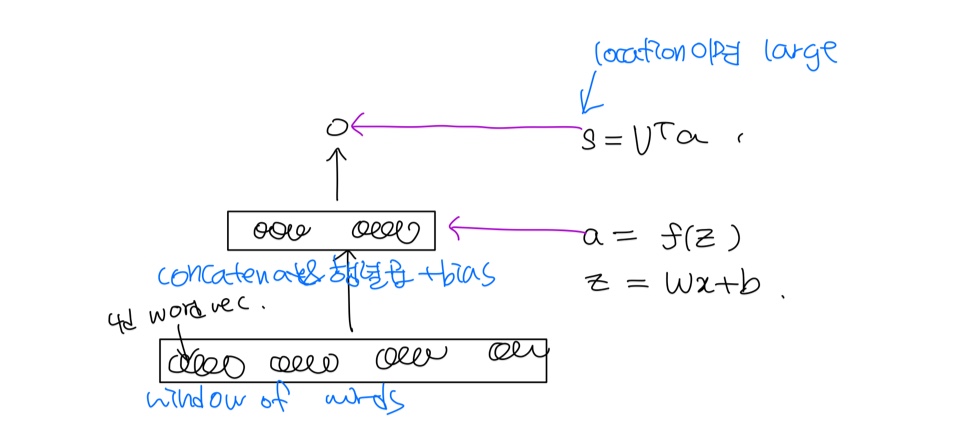 location이면 large
s = Uᵀa
a = f(z)
concatenate & 행렬곱 + bias
z = Wx+b.
4d word vec.
window of words